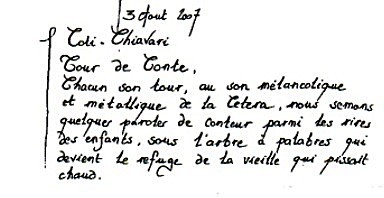 3 Aout 2007
Coti-Chiavari
Tour de Conte,
Chacun son tour, au son mélancolique
et métallique de la Cetera, nous semons
quelques paroles de conteur parmi les rires
des enfants, sous l'arbre à palabres qui
devient le refuge de la vieille qui pissait
chaud.